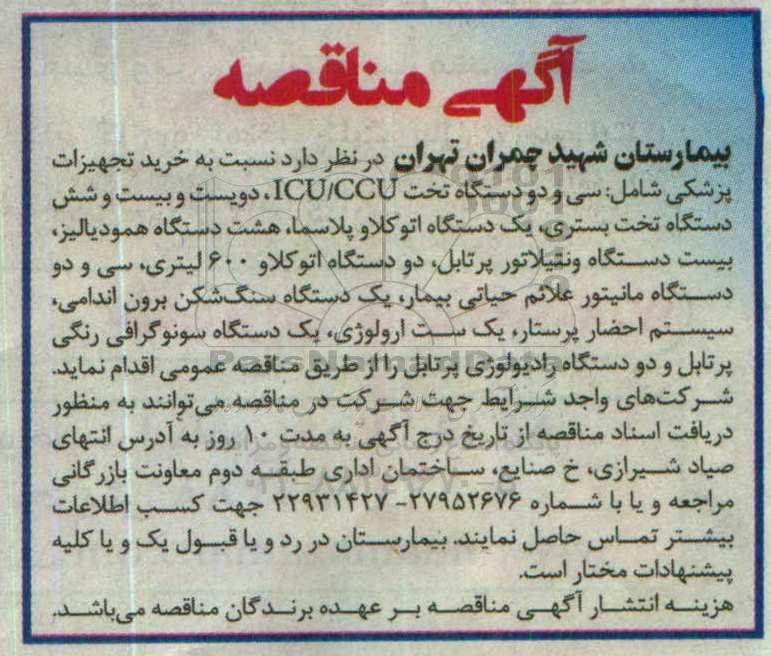 آگهی مناقصه
بیمارستان شهید چمران تهران در نظر دارد نسبت به خرید تجهیزات
پزشکی شامل: سی و دو دستگاه تخت ICU/CCU، دویست و بیست و شش
دستگاه تخت بستری، یک دستگاه اتوکلاو پلاسما، هشت دستگاه همودیالیز،
بیست دستگاه ونتیلاتور پرتابل، دو دستگاه اتوکلاو ۶۰۰ لیتری، سی و دو
دستگاه مانیتور علائم حیاتی بیمار، یک دستگاه سنگ‌شکن برون اندامی،
سیستم احضار پرستار، یک ست ارولوژی، یک دستگاه سونوگرافی رنگی
پرتابل و دو دستگاه رادیولوژی پرتابل را از طریق مناقصه عمومی اقدام نماید.
شرکت‌های واجد شرایط جهت شرکت در مناقصه می‌توانند به منظور
دریافت اسناد مناقصه از تاریخ درج آگهی به مدت ۱۰ روز به آدرس انتهای
صیاد شیرازی، خ صنایع، ساختمان اداری طبقه دوم معاونت بازرگانی
مراجعه و یا با شماره ۲۷۹۵۲۶۷۶- ۲۲۹۳۱۴۲۷ جهت کسب اطلاعات
بیشتر تماس حاصل نمایند. بیمارستان در رد و یا قبول یک و یا کلیه
پیشنهادات مختار است.
هزینه انتشار آگهی مناقصه بر عهده برندگان مناقصه می‌باشد.
ParsNamadData